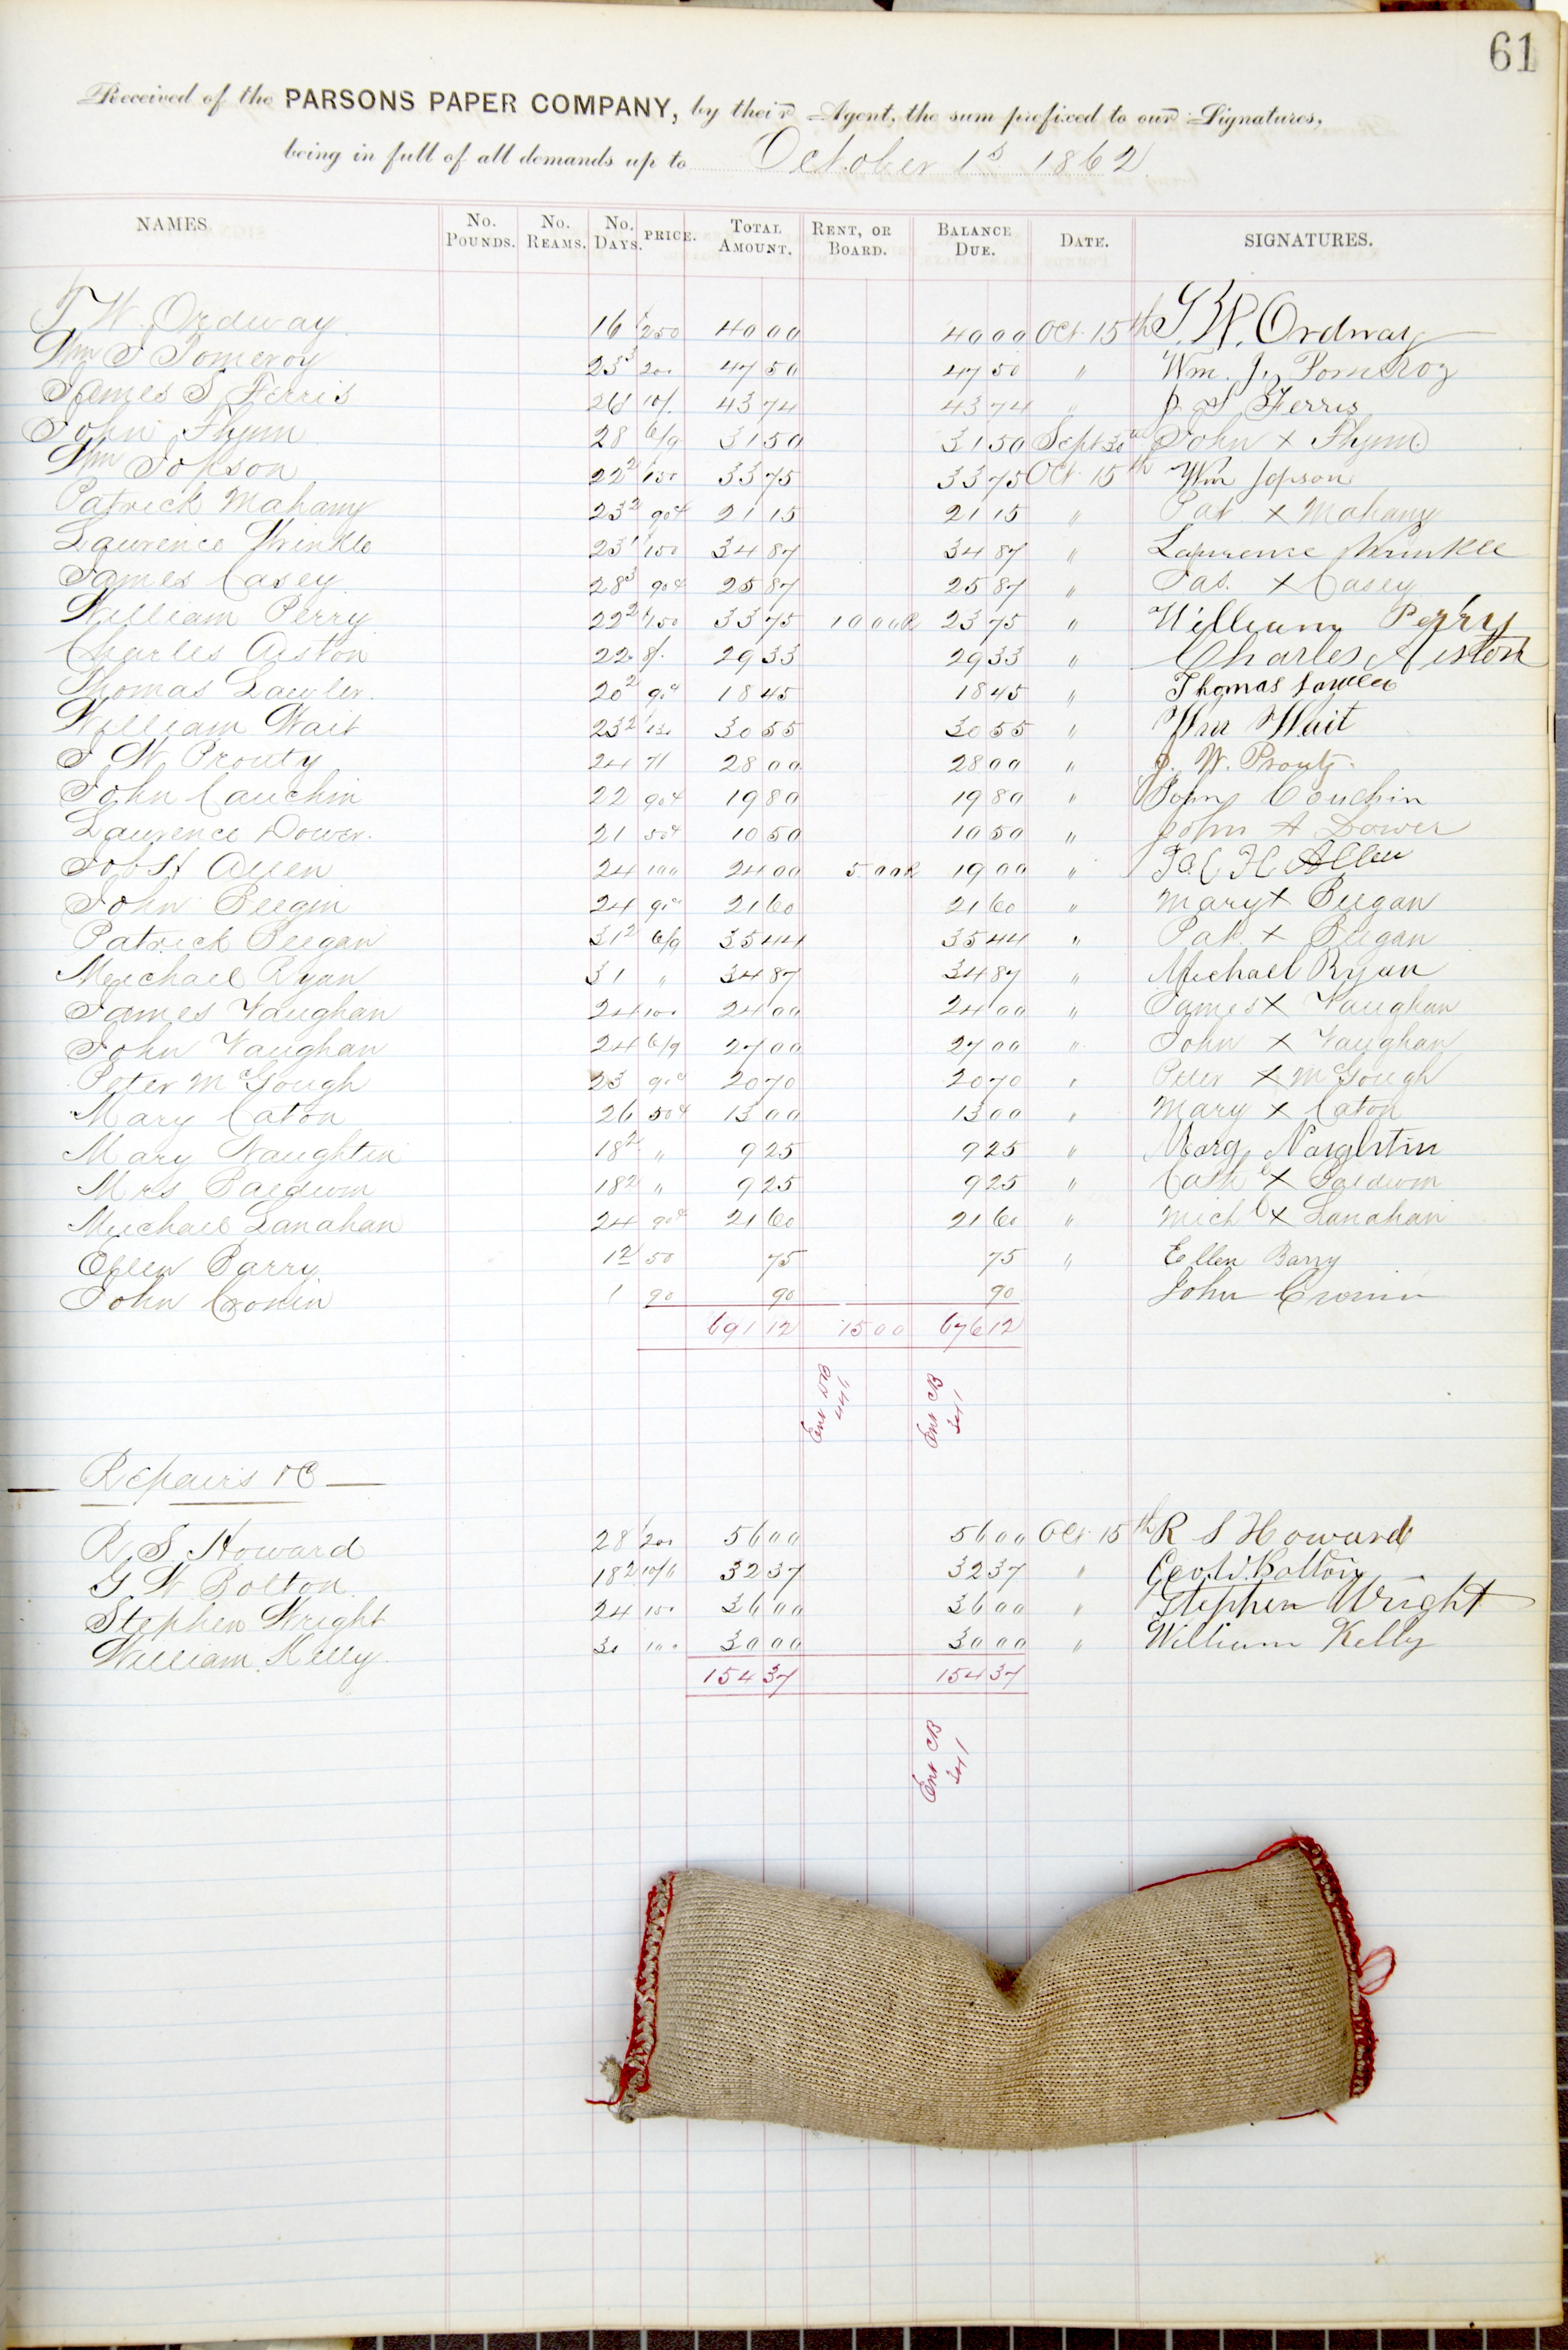 61
Received of the PARSONS PAPER COMPANY, by their Agent, the sum prefixed to our Signatures,
being in full of all demands up to October 1st 1862
NAMES. No. POUNDS. No. REAMS. No. DAYS. PRICE. TOTAL AMOUNT. RENT, OR BOARD. BALANCE DUE. DATE. SIGNATURES.
T W Ordway 16 250 40 00 40 00 Oct 15th T. W. Ordway
Wm J Pomeroy 23 3 200 47 50 47 50 " Wm. J. Pomeroy
James S Ferris 26 1 10/. 43 74 43 74 " J. S. Ferris
John Flynn 28 6/9 31 50 31 50 Sept 30 John x Flynn
Wm Jopson 22 2 150 33 75 33 75 Oct 15th Wm Jopson
Patrick Mahany 23 2 90¢ 21 15 21 15 " Pat x Mahany
Lawrence Wrinkle 23 1 150 34 87 34 87 " Lawrence Wrinkle
James Casey 28 3 90¢ 25 87 25 87 " Jas. x Casey
William Perry 22 2 150 33 75 10 00 R 23 75 " William Perry
Charles Aiston 22 8/. 29 33 29 33 " Charles Aiston
Thomas Lawler 20 2 90¢ 18 45 18 45 " Thomas Lawler
William Wait 23 2 130 30 55 30 55 " Wm Wait
J W Prouty 24 7/ 28 00 28 00 " J. W. Prouty
John Cauchin 22 90¢ 19 80 19 80 " John Couchin
Laurence Dower 21 50¢ 10 50 10 50 " John A Dower
Job H Allen 24 100 24 00 5 00 R 19 00 " H Allen
John Beegin 24 90¢ 21 60 21 60 " Mary x Beegan
Patrick Beegan 31 2 6/9 35 44 35 44 " Pat. x Beegan
Michael Ryan 31 " 34 87 34 87 " Michael Ryan
James Vaughan 24 100 24 00 24 00 " James x Vaughan
John Vaughan 24 6/9 27 00 27 00 " John x Vaughan
Peter McGough 23 90¢ 20 70 20 70 " Peter x McGough
Mary Caton 26 50¢ 13 00 13 00 " Mary x Caton
Mary Naughtin 18 2 " 9 25 9 25 " Mary Naughtin
Mrs Baldwin 18 2 " 9 25 9 25 " Cath x Baldwin
Michael Lanahan 24 90¢ 21 60 21 60 " Michl x Lanahan
Ellen Barry 1 2 50 75 75 " Ellen Barry
John Cronin 1 90 90 90 John Cronin
691 12 15 00 676 12
Ent CB 341
Repairs &C
R S Howard 28 200 56 00 56 00 Oct 15th R S Howard
G W Bolton 18 2 10/6 32 37 32 37 " Geo. W. Bolton
Stephen Wright 24 150 36 00 36 00 " Stephen Wright
William Kelly 30 100 30 00 30 00 " William Kelly
154 37 154 37
Ent CB 341